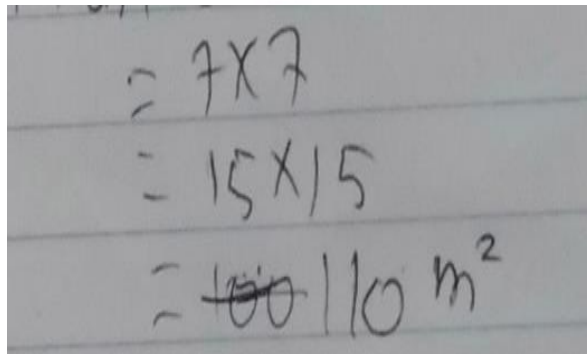 = 7×7
= 15×15
= 110 m²